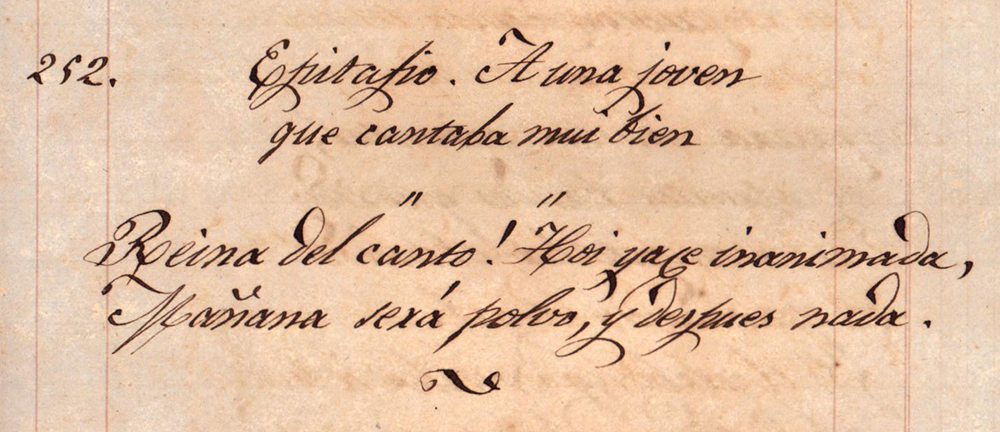 252. Epitafio. A una joven
que cantaba mui bien
" "
Reina del canto! Hoi yace inanimada,
Mañana será polvo, y despues nada.